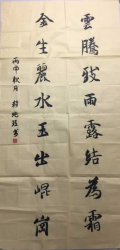 雲騰致雨露結為霜
金生麗水玉出崐崗
丙申秋月